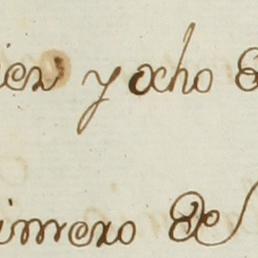 iez y ocho de
imero de